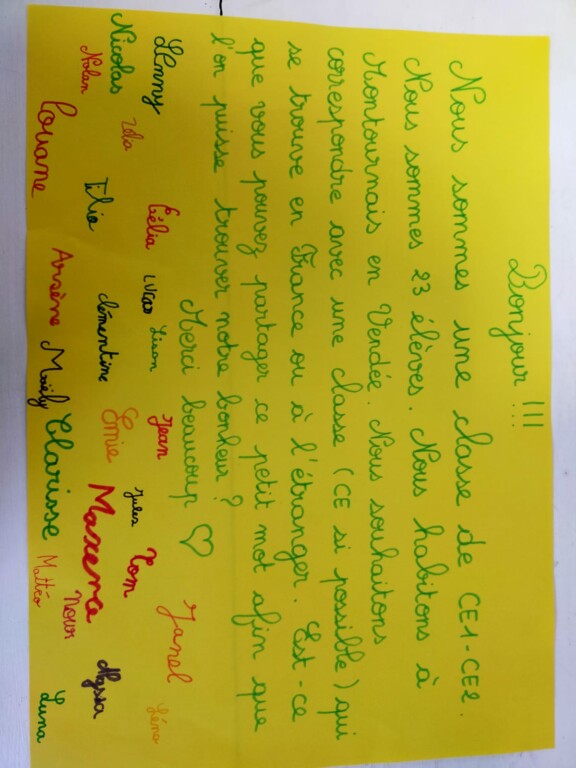 Bonjour !!!
Nous sommes une classe de CE1-CE2.
Nous sommes 23 élèves. Nous habitons à
Montournais en Vendée. Nous souhaitons
correspondre avec une classe (CE si possible) qui
se trouve en France ou à l'étranger. Est-ce
que vous pouvez partager ce petit mot afin que
l'on puisse trouver notre bonheur ?
Merci beaucoup ♡
Lenny Célia Lucas Lison Jean Jules Tom Janel Léna
Nicolas Nolan Tilio Clémentine Emie Maxence Nour Alyssa
Louane Arsène Maëly Clarisse Mattéo Luna